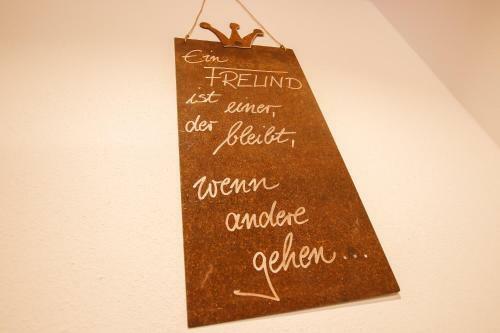 Ein
FREUND
ist einer,
der bleibt,
wenn
andere
gehen...